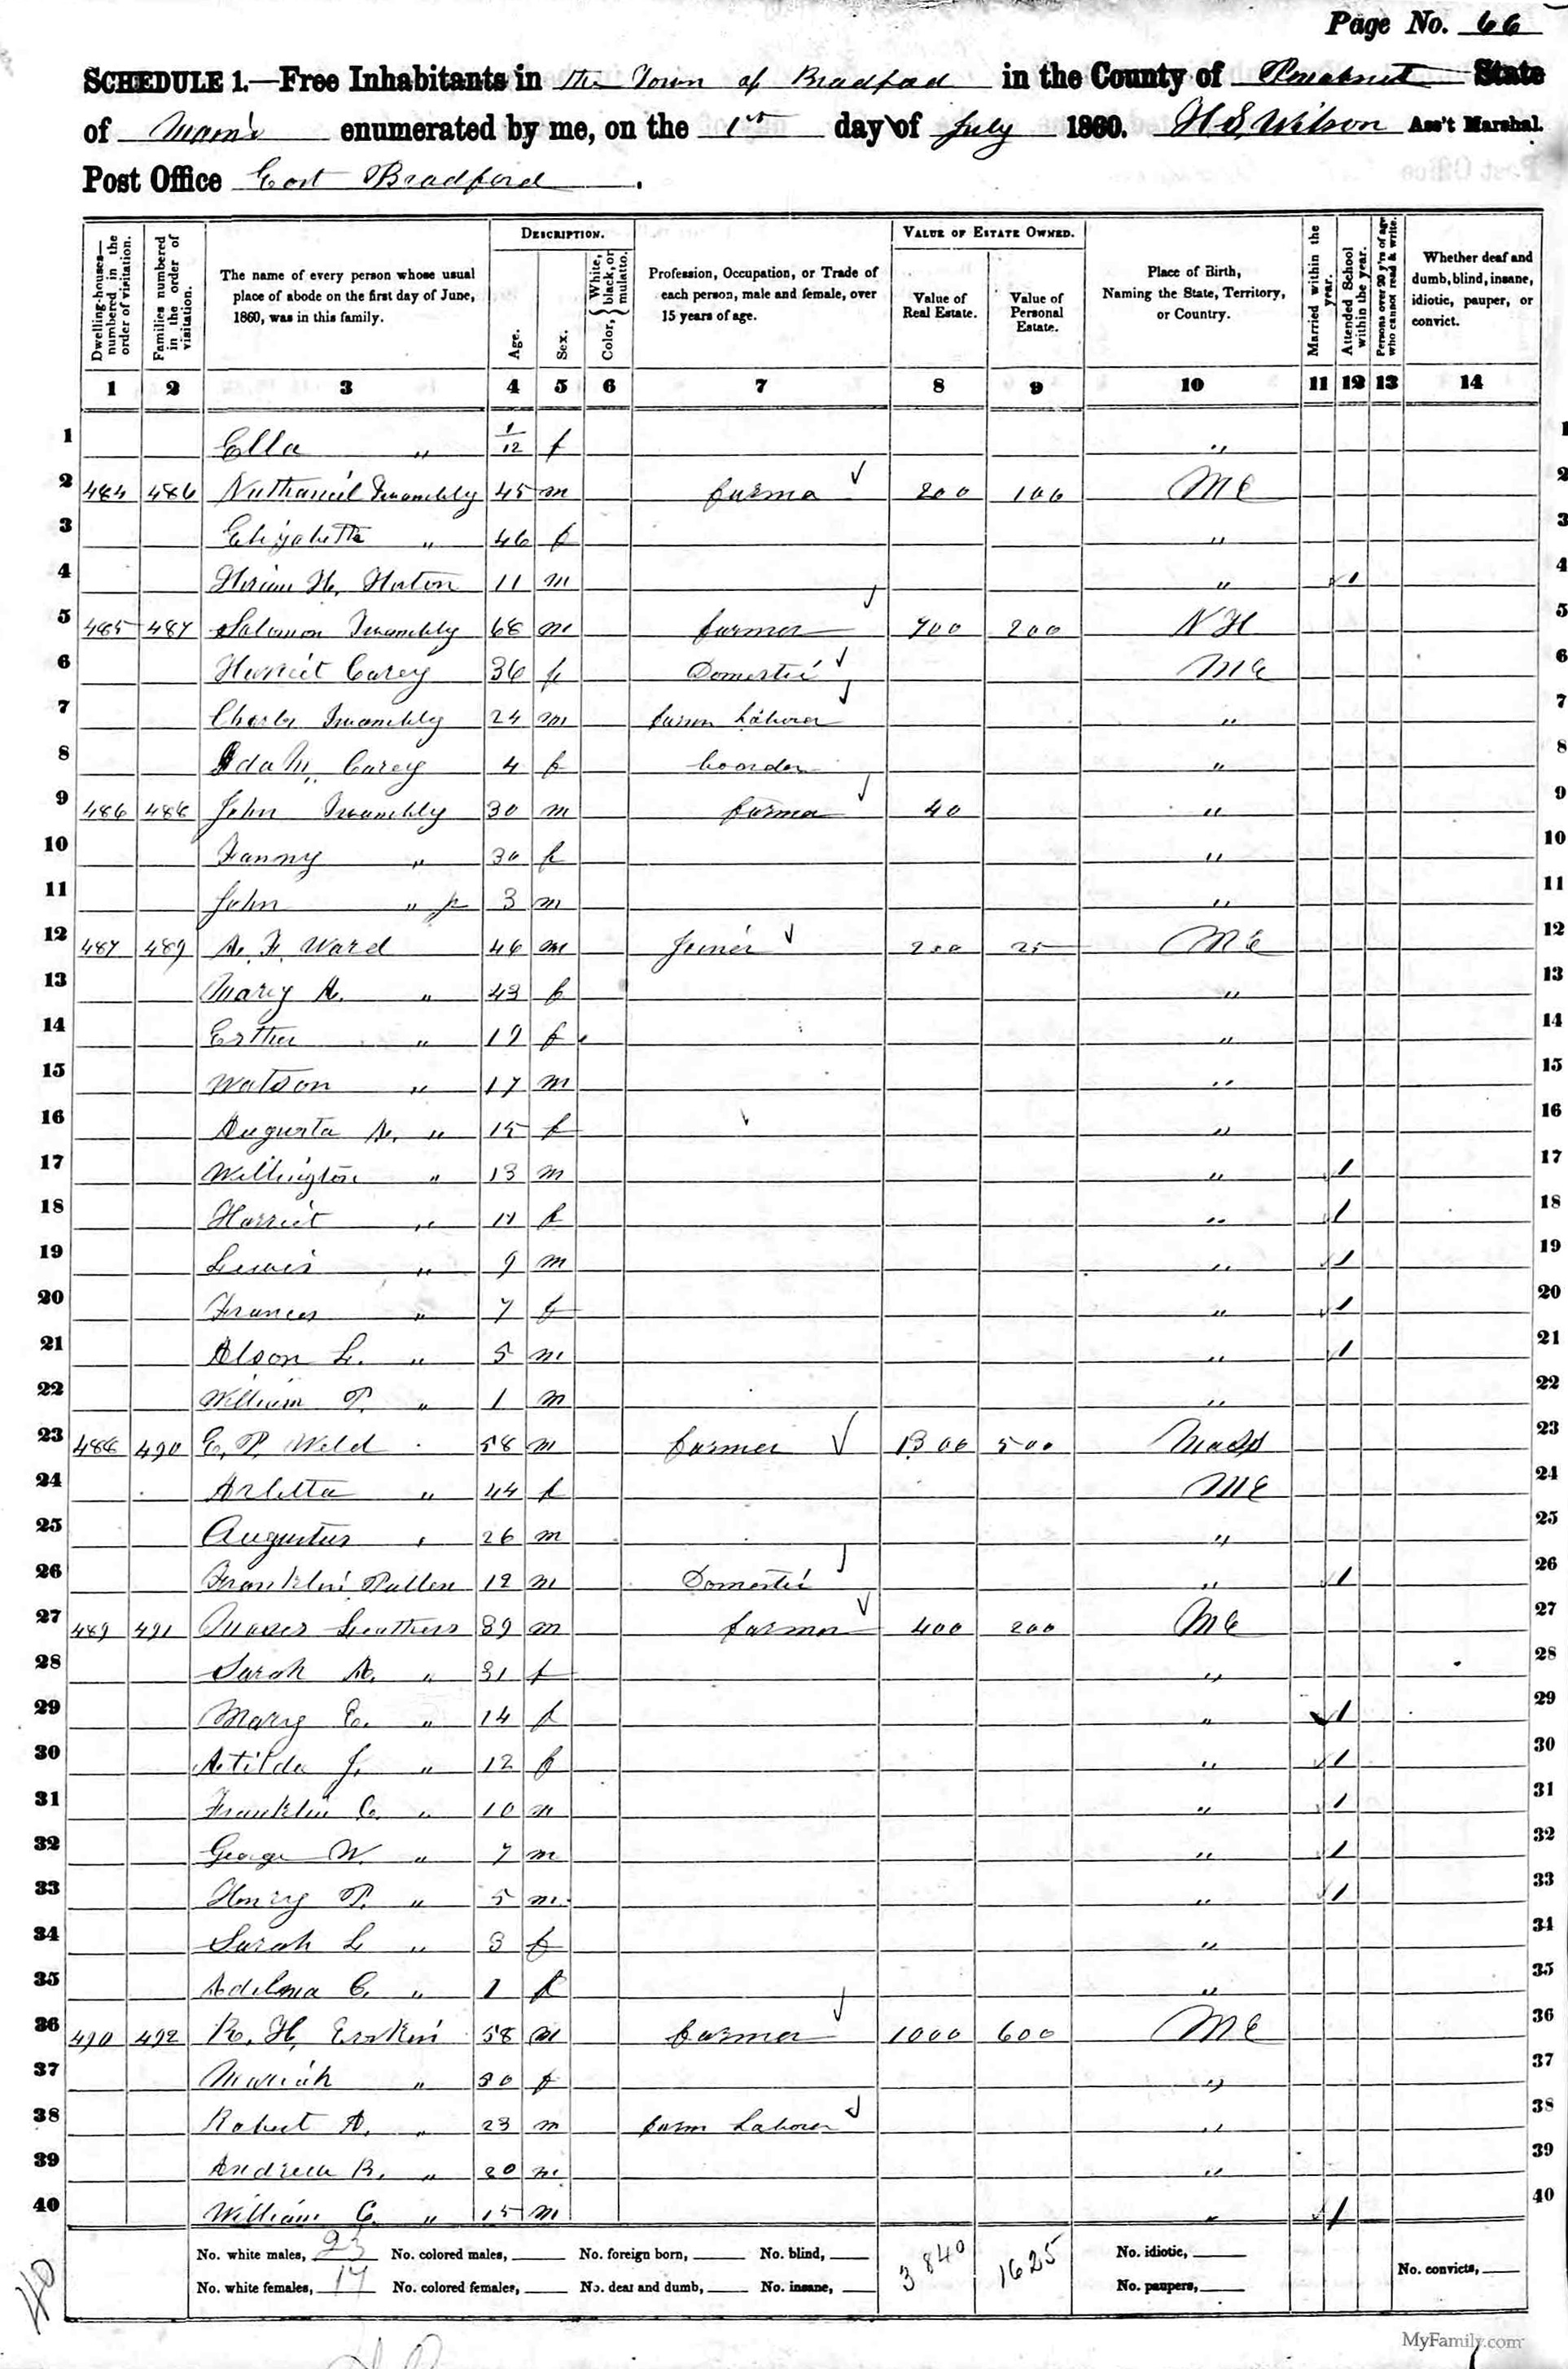 Page No. 66
SCHEDULE 1.—Free Inhabitants in the Town of Bradford in the County of Penobscot State
of Maine enumerated by me, on the 1st day of July 1860. H S Wilson Ass't Marshal.
Post Office East Bradford.
Dwelling-houses—numbered in the order of visitation.
Families numbered in the order of visitation.
The name of every person whose usual place of abode on the first day of June, 1860, was in this family.
DESCRIPTION.
Age.
Sex.
Color, { White, black, or mulatto.
Profession, Occupation, or Trade of each person, male and female, over 15 years of age.
VALUE OF ESTATE OWNED.
Value of Real Estate.
Value of Personal Estate.
Place of Birth, Naming the State, Territory, or Country.
Married within the year.
Attended School within the year.
Persons over 20 y'rs of age who cannot read & write.
Whether deaf and dumb, blind, insane, idiotic, pauper, or convict.
1 2 3 4 5 6 7 8 9 10 11 12 13 14
1 Ella " 1/12 f " 1
2 484 486 Nathaniel Twambly 45 m farmer 200 100 ME 2
3 Elizabeth " 46 f " 3
4 Hiram H. Horton 11 m " / 4
5 485 487 Solomon Twambly 68 m farmer 700 200 NH 5
6 Harriet Carey 36 f Domestic ME 6
7 Charles Twambly 24 m farm Laborer " 7
8 Ida M. Carey 4 f boarder " 8
9 486 488 John Twambly 30 m farmer 40 " 9
10 Fanny " 30 f " 10
11 John " jr 3 m " 11
12 487 489 A. F. Ward 46 m Joiner 200 25 ME 12
13 Mary A. " 43 f " 13
14 Esther " 19 f " 14
15 Watson " 17 m " 15
16 Augusta A. " 15 f " 16
17 Wellington " 13 m " / 17
18 Harriet " 11 f " / 18
19 Lewis " 9 m " / 19
20 Frances " 7 f " / 20
21 Alson L. " 5 m " / 21
22 William P. " 1 m " 22
23 488 490 E. P. Weld 58 m farmer 1300 500 Mass 23
24 Arletta " 44 f ME 24
25 Augustus " 26 m " 25
26 Franklin Pullen 12 m Domestic " / 26
27 489 491 Moses Leathers 39 m farmer 400 200 ME 27
28 Sarah A. " 31 f " 28
29 Mary E. " 14 f " / 29
30 Atilda J. " 12 f " / 30
31 Franklin C. " 10 m " / 31
32 George W. " 7 m " / 32
33 Henry P. " 5 m " / 33
34 Sarah L " 3 f " 34
35 Adelma C. " 1 f " 35
36 490 492 R. H. Erskin 58 m farmer 1000 600 ME 36
37 Mariah " 30 f " 37
38 Robert A. " 23 m farm Laborer " 38
39 Andrew R. " 20 m " 39
40 William C. " 15 m " / 40
No. white males, 23 No. colored males, No. foreign born, No. blind, 3840 1625 No. idiotic,
No. white females, 17 No. colored females, No. deaf and dumb, No. insane, No. paupers, No. convicts,
40
MyFamily.com